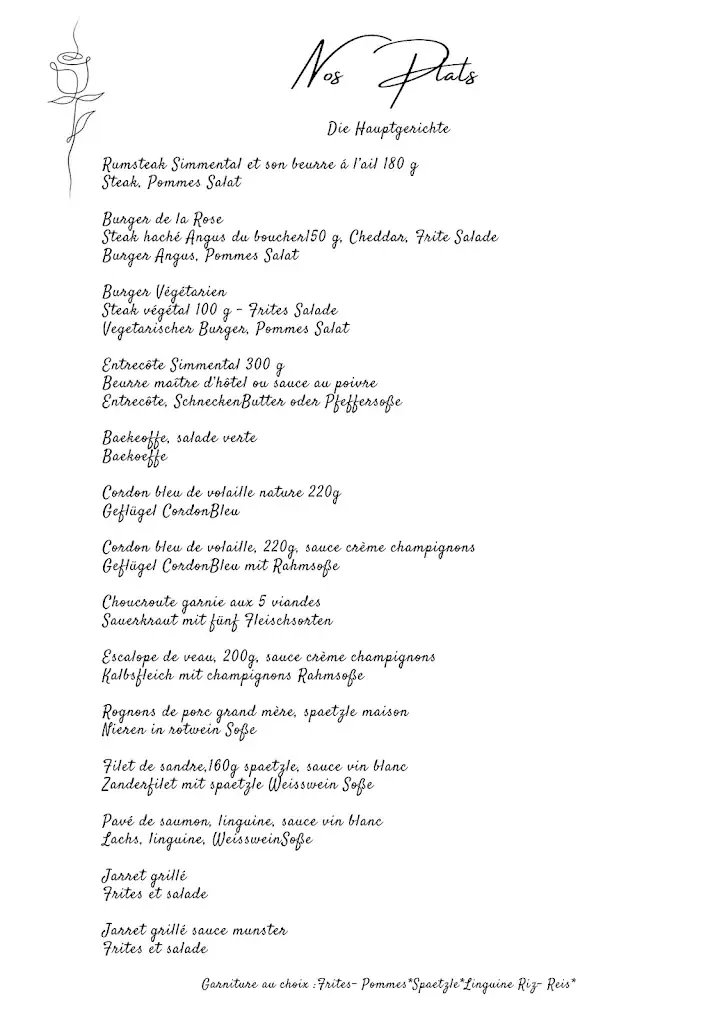 Nos Plats
Die Hauptgerichte
Rumsteak Simmental et son beurre á l'ail 180 g
Steak, Pommes Salat
Burger de la Rose
Steak haché Angus du boucher150 g, Cheddar, Frite Salade
Burger Angus, Pommes Salat
Burger Végétarien
Steak végétal 100 g - Frites Salade
Vegetarischer Burger, Pommes Salat
Entrecôte Simmental 300 g
Beurre maître d'hôtel ou sauce au poivre
Entrecôte, SchneckenButter oder Pfeffersoße
Baekeoffe, salade verte
Baekoeffe
Cordon bleu de volaille nature 220g
Geflügel CordonBleu
Cordon bleu de volaille, 220g, sauce crème champignons
Geflügel CordonBleu mit Rahmsoße
Choucroute garnie aux 5 viandes
Sauerkraut mit fünf Fleischsorten
Escalope de veau, 200g, sauce crème champignons
Kalbsfleich mit champignons Rahmsoße
Rognons de porc grand mère, spaetzle maison
Nieren in rotwein Soße
Filet de sandre,160g spaetzle, sauce vin blanc
Zanderfilet mit spaetzle Weisswein Soße
Pavé de saumon, linguine, sauce vin blanc
Lachs, linguine, WeissweinSoße
Jarret grillé
Frites et salade
Jarret grillé sauce munster
Frites et salade
Garniture au choix :Frites- Pommes*Spaetzle*Linguine Riz- Reis*